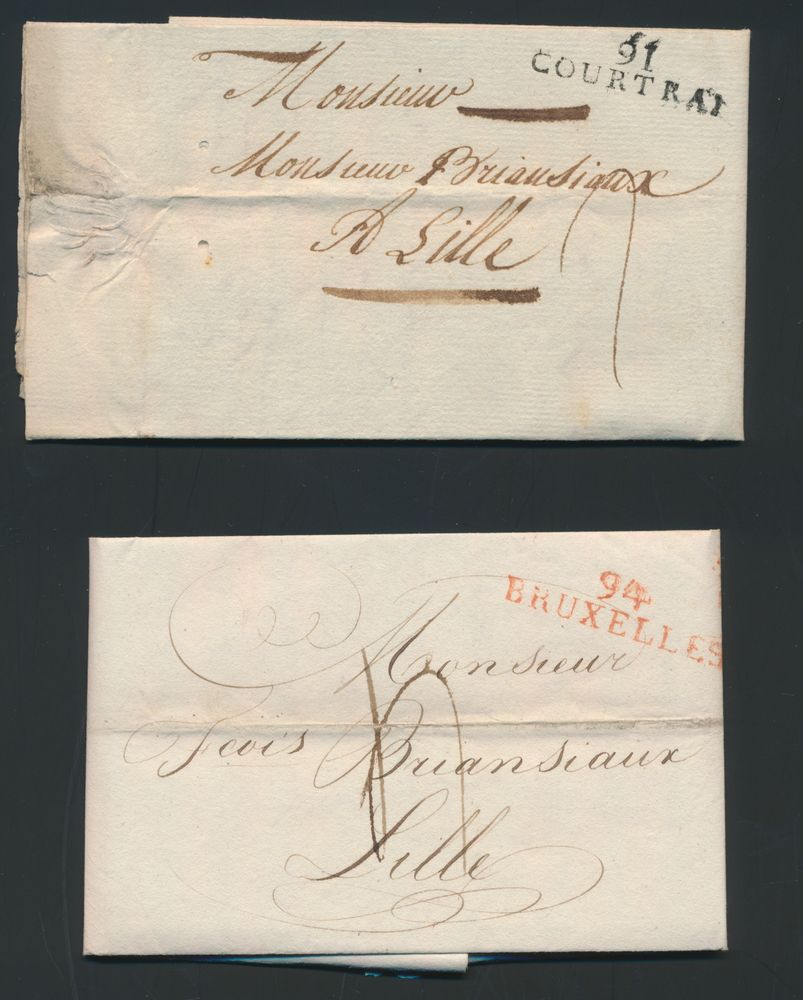 91
COURTRAI
Monsieur
Monsieur Briansiaux
A Lille
94
BRUXELLES
Monsieur
Fcois Briansiaux
Lille